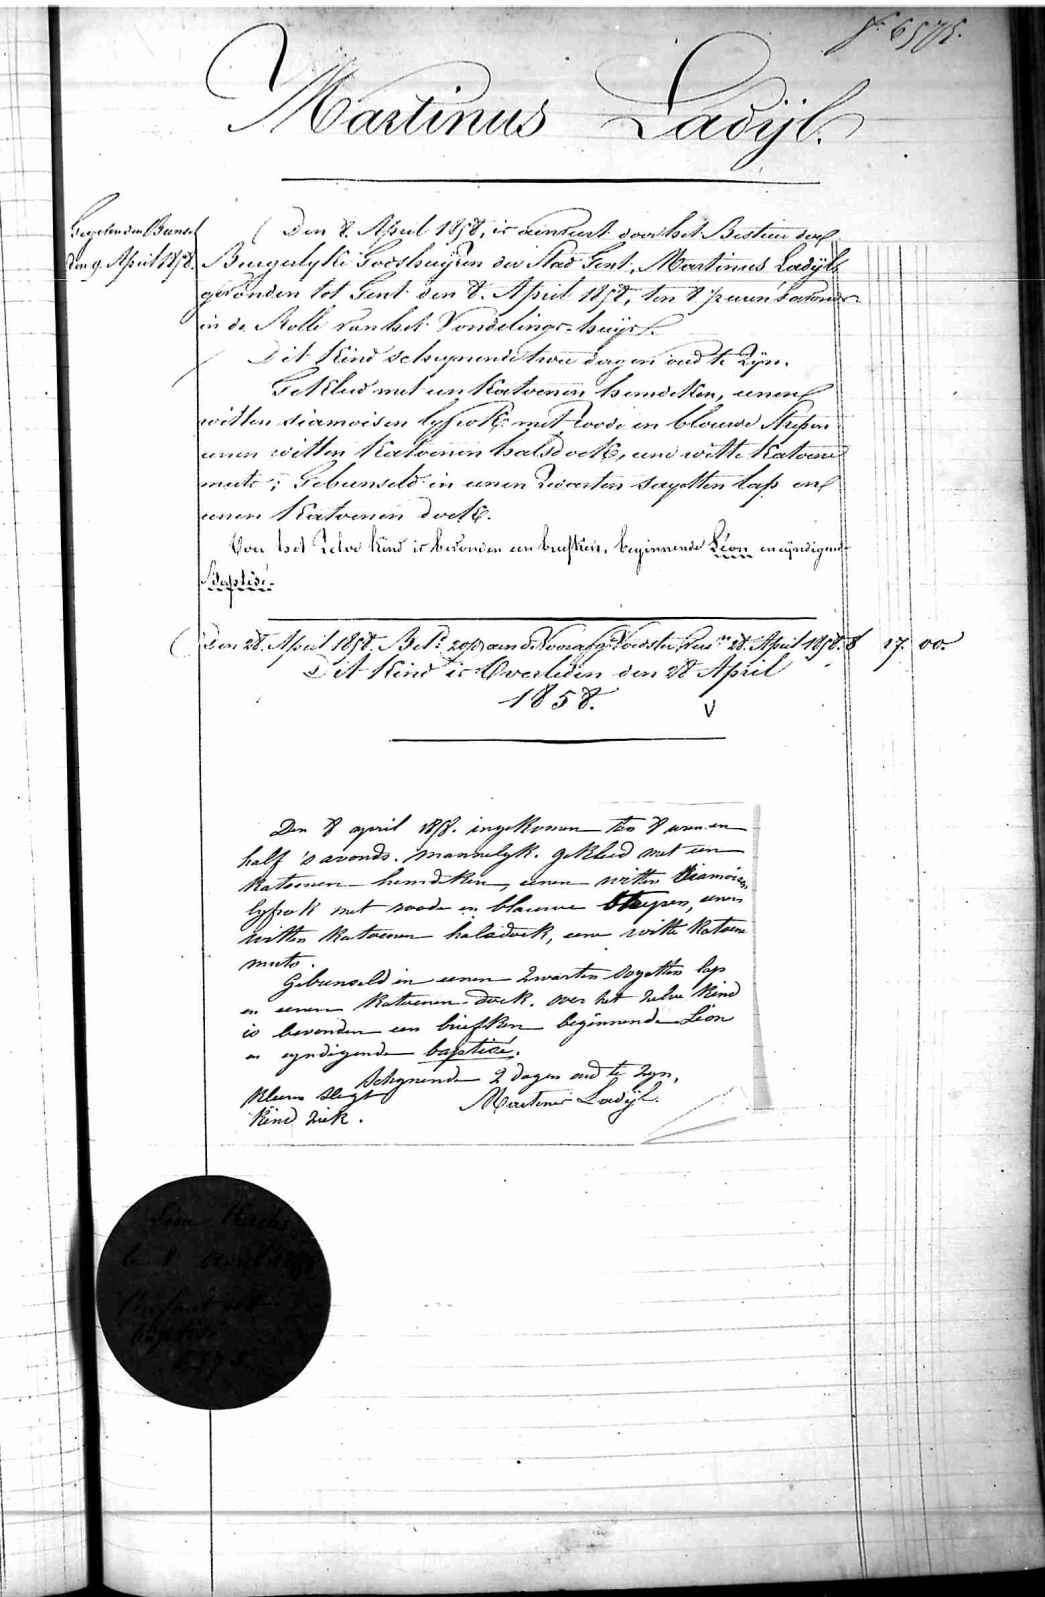 f° 6575.
Martinus Ladijl.
Gegeven den Bunsel
den 9. April 1858.
Den 8. April 1858, is aenveert door het Bestier der
Burgerlyke Godshuyzen der Stad Gent, Martinus Ladijl,
gevonden tot Gent den 8. April 1858, ten 8 ½ uren 's avonds
in de Rolle van het Vondelings-huys.
Dit Kind schynende twee dagen oud te Zyn.
Gekleed met een Katoenen hemdeken, eenen
witten siamoisen lyfrok met roode en blauwe strepen
eenen witten Katoenen halsdoek, eene witte Katoene
muts; Gebunseld in eenen Zwarten sayetten lap en
eenen Katoenen doek.
Over het Zelve Kind is bevonden een briefken, beginnende Léon en eyndigende
Baptisé.
Den 28. April 1858. Bet. aen de Voorafg. Voedster 28. April 1858. f 17. 00.
Dit Kind is Overleden den 28 April
1858.
V
Den 8 april 1858. ingekomen ten 8 uren en
half 's avonds. mannelyk. gekleed met een
katoenen hemdken, eenen witten Siamoisen
lyfrok met roode en blauwe strepen, eenen
witten katoenen halsdoek, eene witte katoene
muts.
Gebunseld in eenen zwarten sayetten lap
en eenen katoenen doek. over het zelve kind
is bevonden een briefken beginnende Léon
en eyndigende baptisé.
Schynende 2 dagen oud te zyn,
kleeren slegt
Martinus Ladijl.
kind ziek.
Léon
le 8 avril 1858
l'enfant est
baptisé
6575